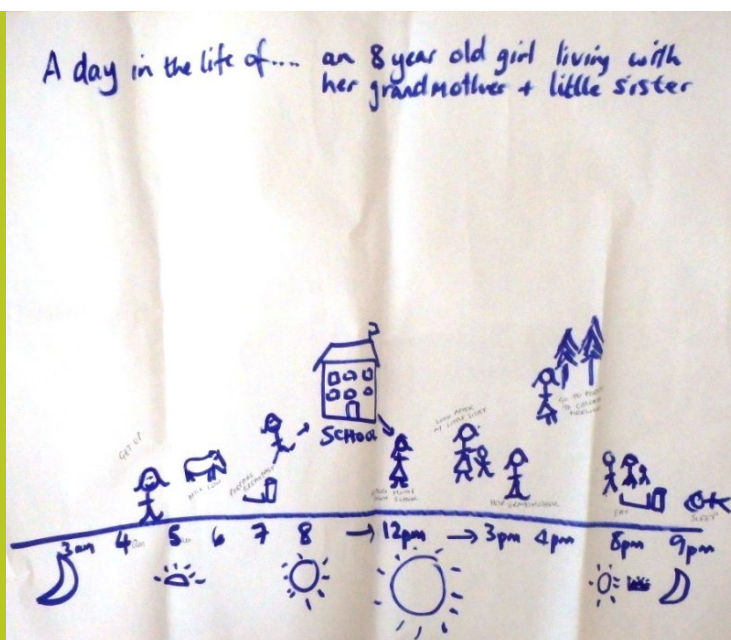 A day in the life of.... an 8 year old girl living with
her grandmother + little sister
GET UP
MILK COW
PREPARE
BREAKFAST
SCHOOL
LOOK AFTER
MY LITTLE SISTER
COMES HOME
FROM SCHOOL
HELP GRANDMOTHER
GO TO FOREST
TO COLLECT
FIREWOOD
EAT
SLEEP
3am 4am 5am 6 7 8 → 12pm → 3pm 4pm 8pm 9pm